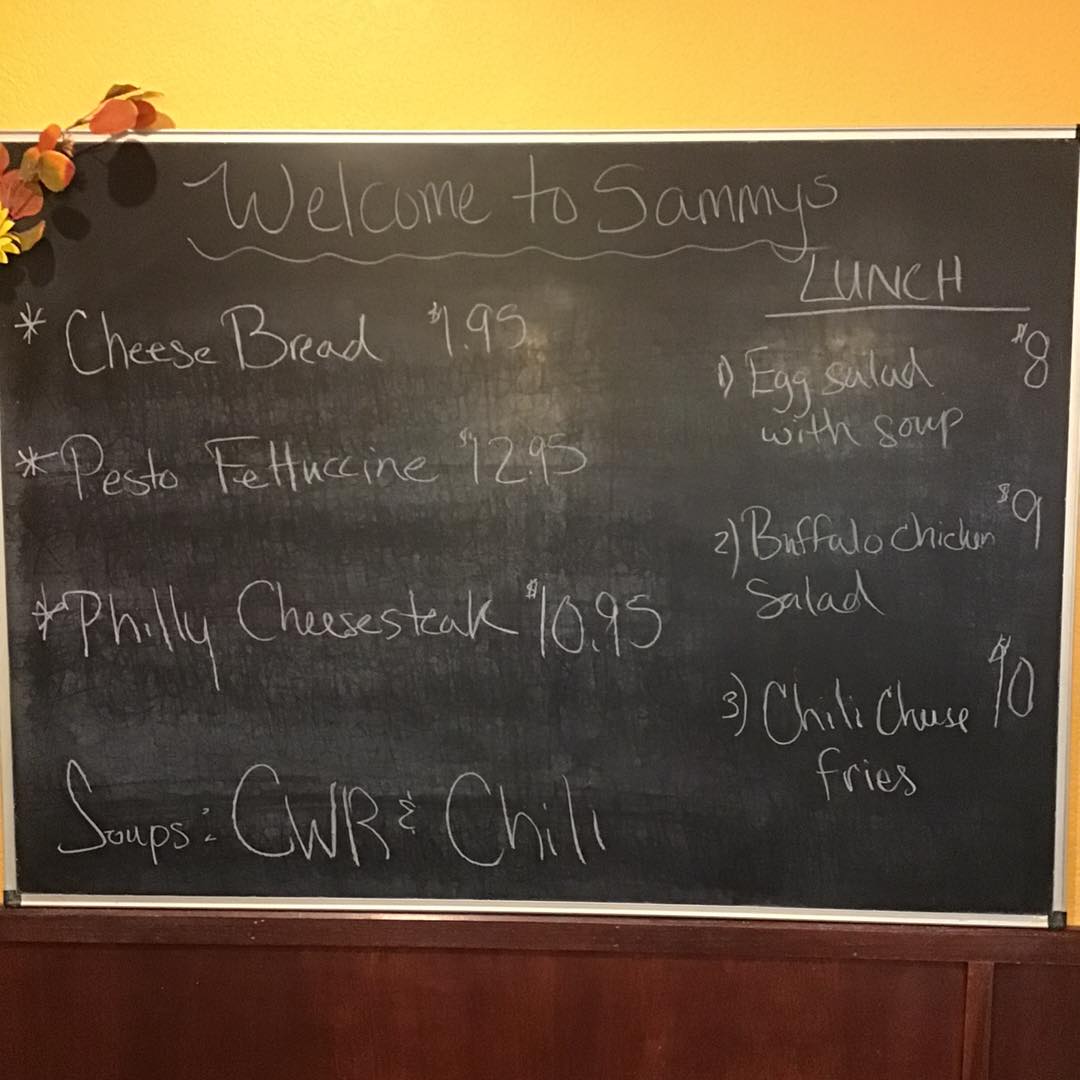 Welcome to Sammys
* Cheese Bread $1.95
* Pesto Fettuccine $12.95
* Philly Cheesesteak $10.95
Soups: CWR & Chili
LUNCH
1) Egg salad $8
with soup
2) Buffalo chicken $9
Salad
3) Chili Cheese $10
fries